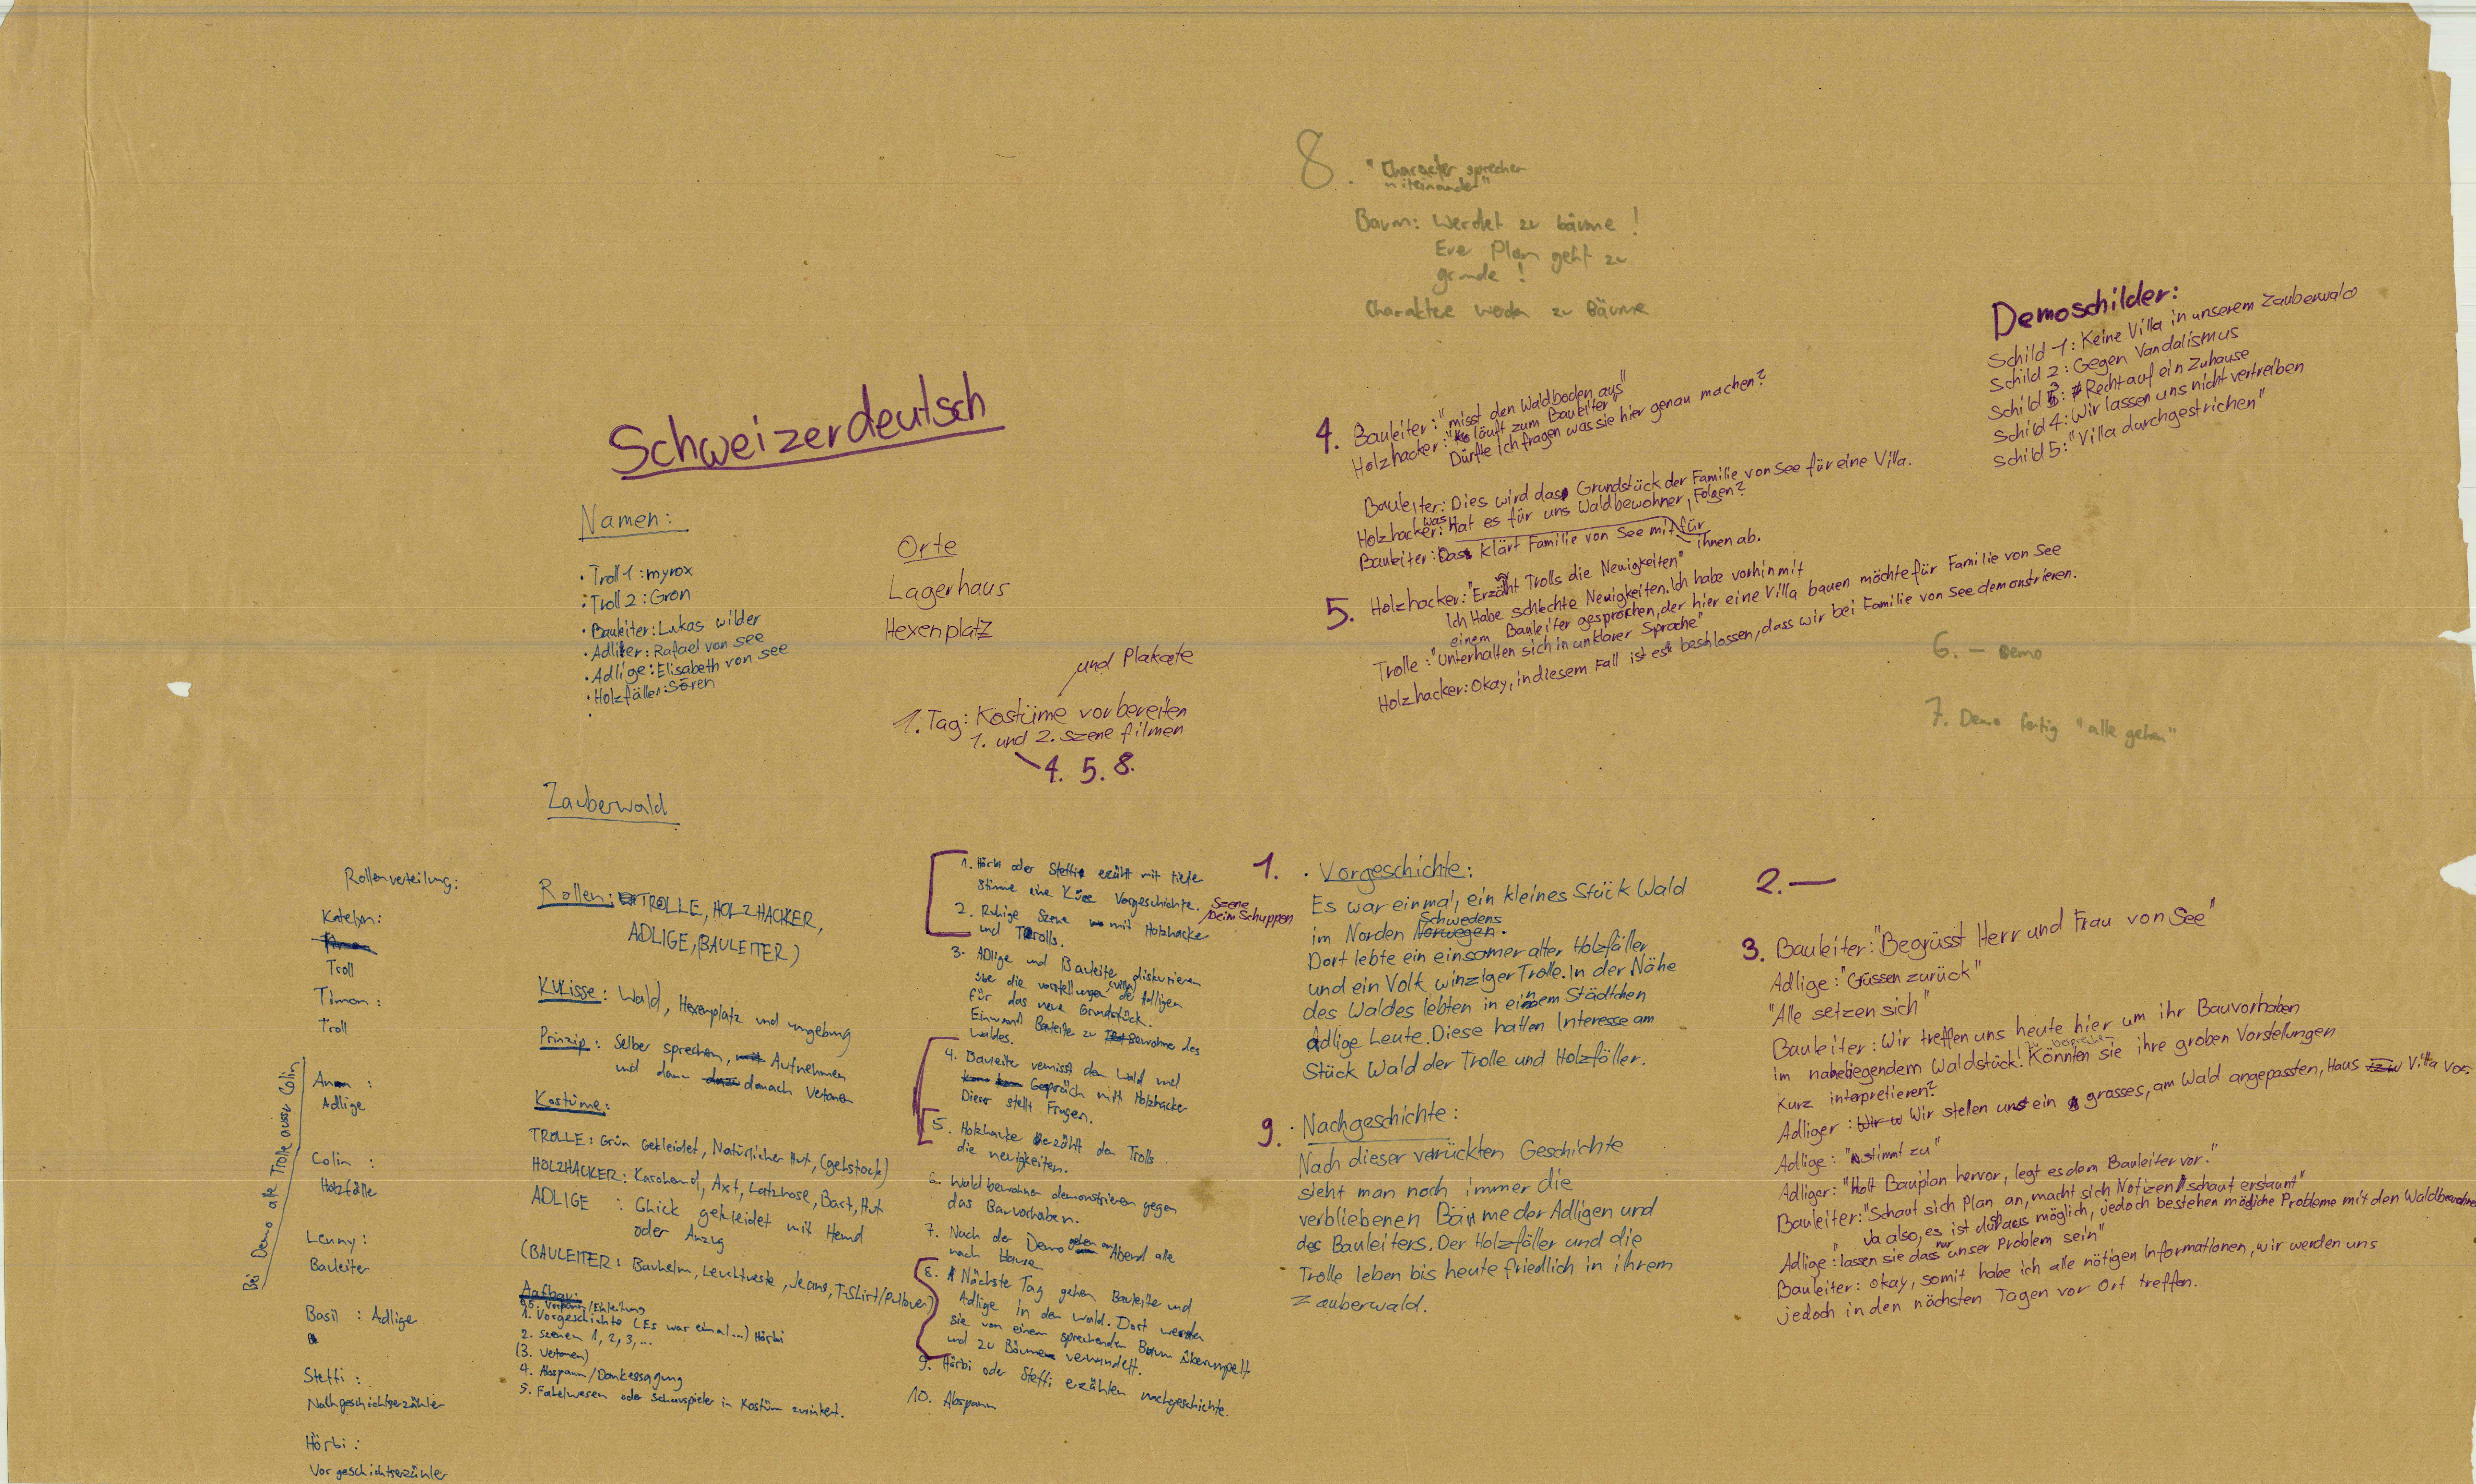 8. "Character sprechen
miteinander"
Baum: Werdet zu bäume!
Eue Plan geht zu
grunde!
Charaktere werden zu Bäume
Demoschilder:
Schild 1: Keine Villa in unserem Zauberwald
Schild 2: Gegen Vandalismus
Schild 3: Recht auf ein Zuhause
Schild 4: Wir lassen uns nicht vertreiben
Schild 5: "Villa durchgestrichen"
Schweizerdeutsch
Namen:
• Troll 1: myrox
• Troll 2: Gron
• Bauleiter: Lukas wilder
• Adliger: Rafael von see
• Adlige: Elisabeth von see
• Holzfäller: Sören
Orte
Lagerhaus
Hexenplatz
und Plakate
1. Tag: Kostüme vorbereiten
1. und 2. szene filmen
4. 5. 8.
4. Bauleiter: "misst den Waldboden aus"
Holzhacker: "läuft zum Bauleiter"
Dürfte ich fragen was sie hier genau machen?
Bauleiter: Dies wird das Grundstück der Familie von See für eine Villa.
Holzhacker: was Hat es für uns Waldbewohner, für Folgen?
Bauleiter: Das klärt Familie von See mit ihnen ab.
5. Holzhacker: "Erzählt Trolls die Neuigkeiten"
Ich Habe schlechte Neuigkeiten. Ich habe vorhin mit
einem Bauleiter gesprochen, der hier eine Villa bauen möchte für Familie von See
Trolle: "Unterhalten sich in unklarer Sprache"
Holzhacker: Okay, in diesem Fall ist es beschlossen, dass wir bei Familie von See demonstrieren.
6. – Demo
7. Demo fertig "alle gehen"
Zauberwald
Rollenverteilung:
Katelyn:
Troll
Timon:
Troll
Anon:
Adlige
Colin:
Holzfälle
Lenny:
Bauleiter
Basil: Adlige
Steffi:
Nachgeschichtserzähler
Hörbi:
Vorgeschichtserzähler
Bei Demo alle Trolle ausser Colin
Rollen: TROLLE, HOLZHACKER,
ADLIGE, (BAULEITER)
Kulisse: Wald, Hexenplatz und umgebung
Prinzip: Selber sprechen, Aufnehmen
und dann danach Vertonen
Kostüme:
TROLLE: Grün Gekleidet, Natürlicher Hut, (gehstock)
HOLZHACKER: Karohemd, Axt, Latzhose, Bart, Hut
ADLIGE: Chick gekleidet mit Hemd
oder Anzug
(BAULEITER: Bauhelm, Leuchtweste, Jeans, T-Shirt/Pullover)
Aufbau:
0.5. Vorspann/Einleitung
1. Vorgeschichte (Es war einmal...) Hörbi
2. szenen 1, 2, 3, ...
(3. Vertonen)
4. Abspann/Danksagung
5. Fabelwesen oder Schauspieler in Kostüm
1. Hörbi oder Steffi erzählt mit tiefe
Stimme eine Kurze Vorgeschichte.
2. Ruhige Szene mit Holzhacker
und Trolls.
Szene
beim Schuppen
3. Adlige und Bauleiter diskutieren
übe die vorstellungen (villa) der Adligen
für das neue Grundstück.
Einwand Bauleite zu Bewohne des
Waldes.
4. Bauleite vermisst den Wald und
Gespräch mitt Holzhacker
Dieser stellt Fragen.
5. Holzhacke erzählt den Trolls
die neuigkeiten.
6. Waldbewohner demonstrieren gegen
das Bauvorhaben.
7. Nach der Demo gehen am Abend alle
nach hause
8. Nächste Tag gehen Bauleite und
Adlige in den wald. Dort werden
sie von einem sprechenden Baum überrumpelt
und zu Bäumen verwandelt.
9. Hörbi oder Steffi erzählen nachgeschichte.
10. Abspann
1. • Vorgeschichte:
Es war einmal, ein kleines Stück Wald
im Norden Norwegen Schwedens.
Dort lebte ein einsamer alter Holzfäller
und ein Volk winziger Trolle. In der Nähe
des Waldes lebten in einem Städtchen
Adlige Leute. Diese hatten Interesse am
Stück Wald der Trolle und Holzfäller.
9. • Nachgeschichte:
Nach dieser verrückten Geschichte
sieht man noch immer die
verbliebenen Bäume der Adligen und
des Bauleiters. Der Holzfäller und die
Trolle leben bis heute friedlich in ihrem
Zauberwald.
2. —
3. Bauleiter: "Begrüsst Herr und Frau von See"
Adlige: "Grüssen zurück"
"Alle setzen sich"
Bauleiter: Wir treffen uns heute hier um ihr Bauvorhaben
im naheliegendem Waldstück zu besprechen. Könnten sie ihre groben Vorstellungen
kurz interpretieren?
Adliger: Wir stellen uns ein grosses, am Wald angepassten, Haus Villa vor.
Adlige: "stimmt zu"
Adliger: "Holt Bauplan hervor, legt es dem Bauleiter vor."
Bauleiter: "Schaut sich Plan an, macht sich Notizen, schaut erstaunt"
Ja also, es ist durchaus möglich, jedoch bestehen mögliche Probleme mit den Waldbewohner
Adlige: "lassen sie das nur unser Problem sein"
Bauleiter: okay, somit habe ich alle nötigen Informationen, wir werden uns
jedoch in den nächsten Tagen vor Ort treffen.